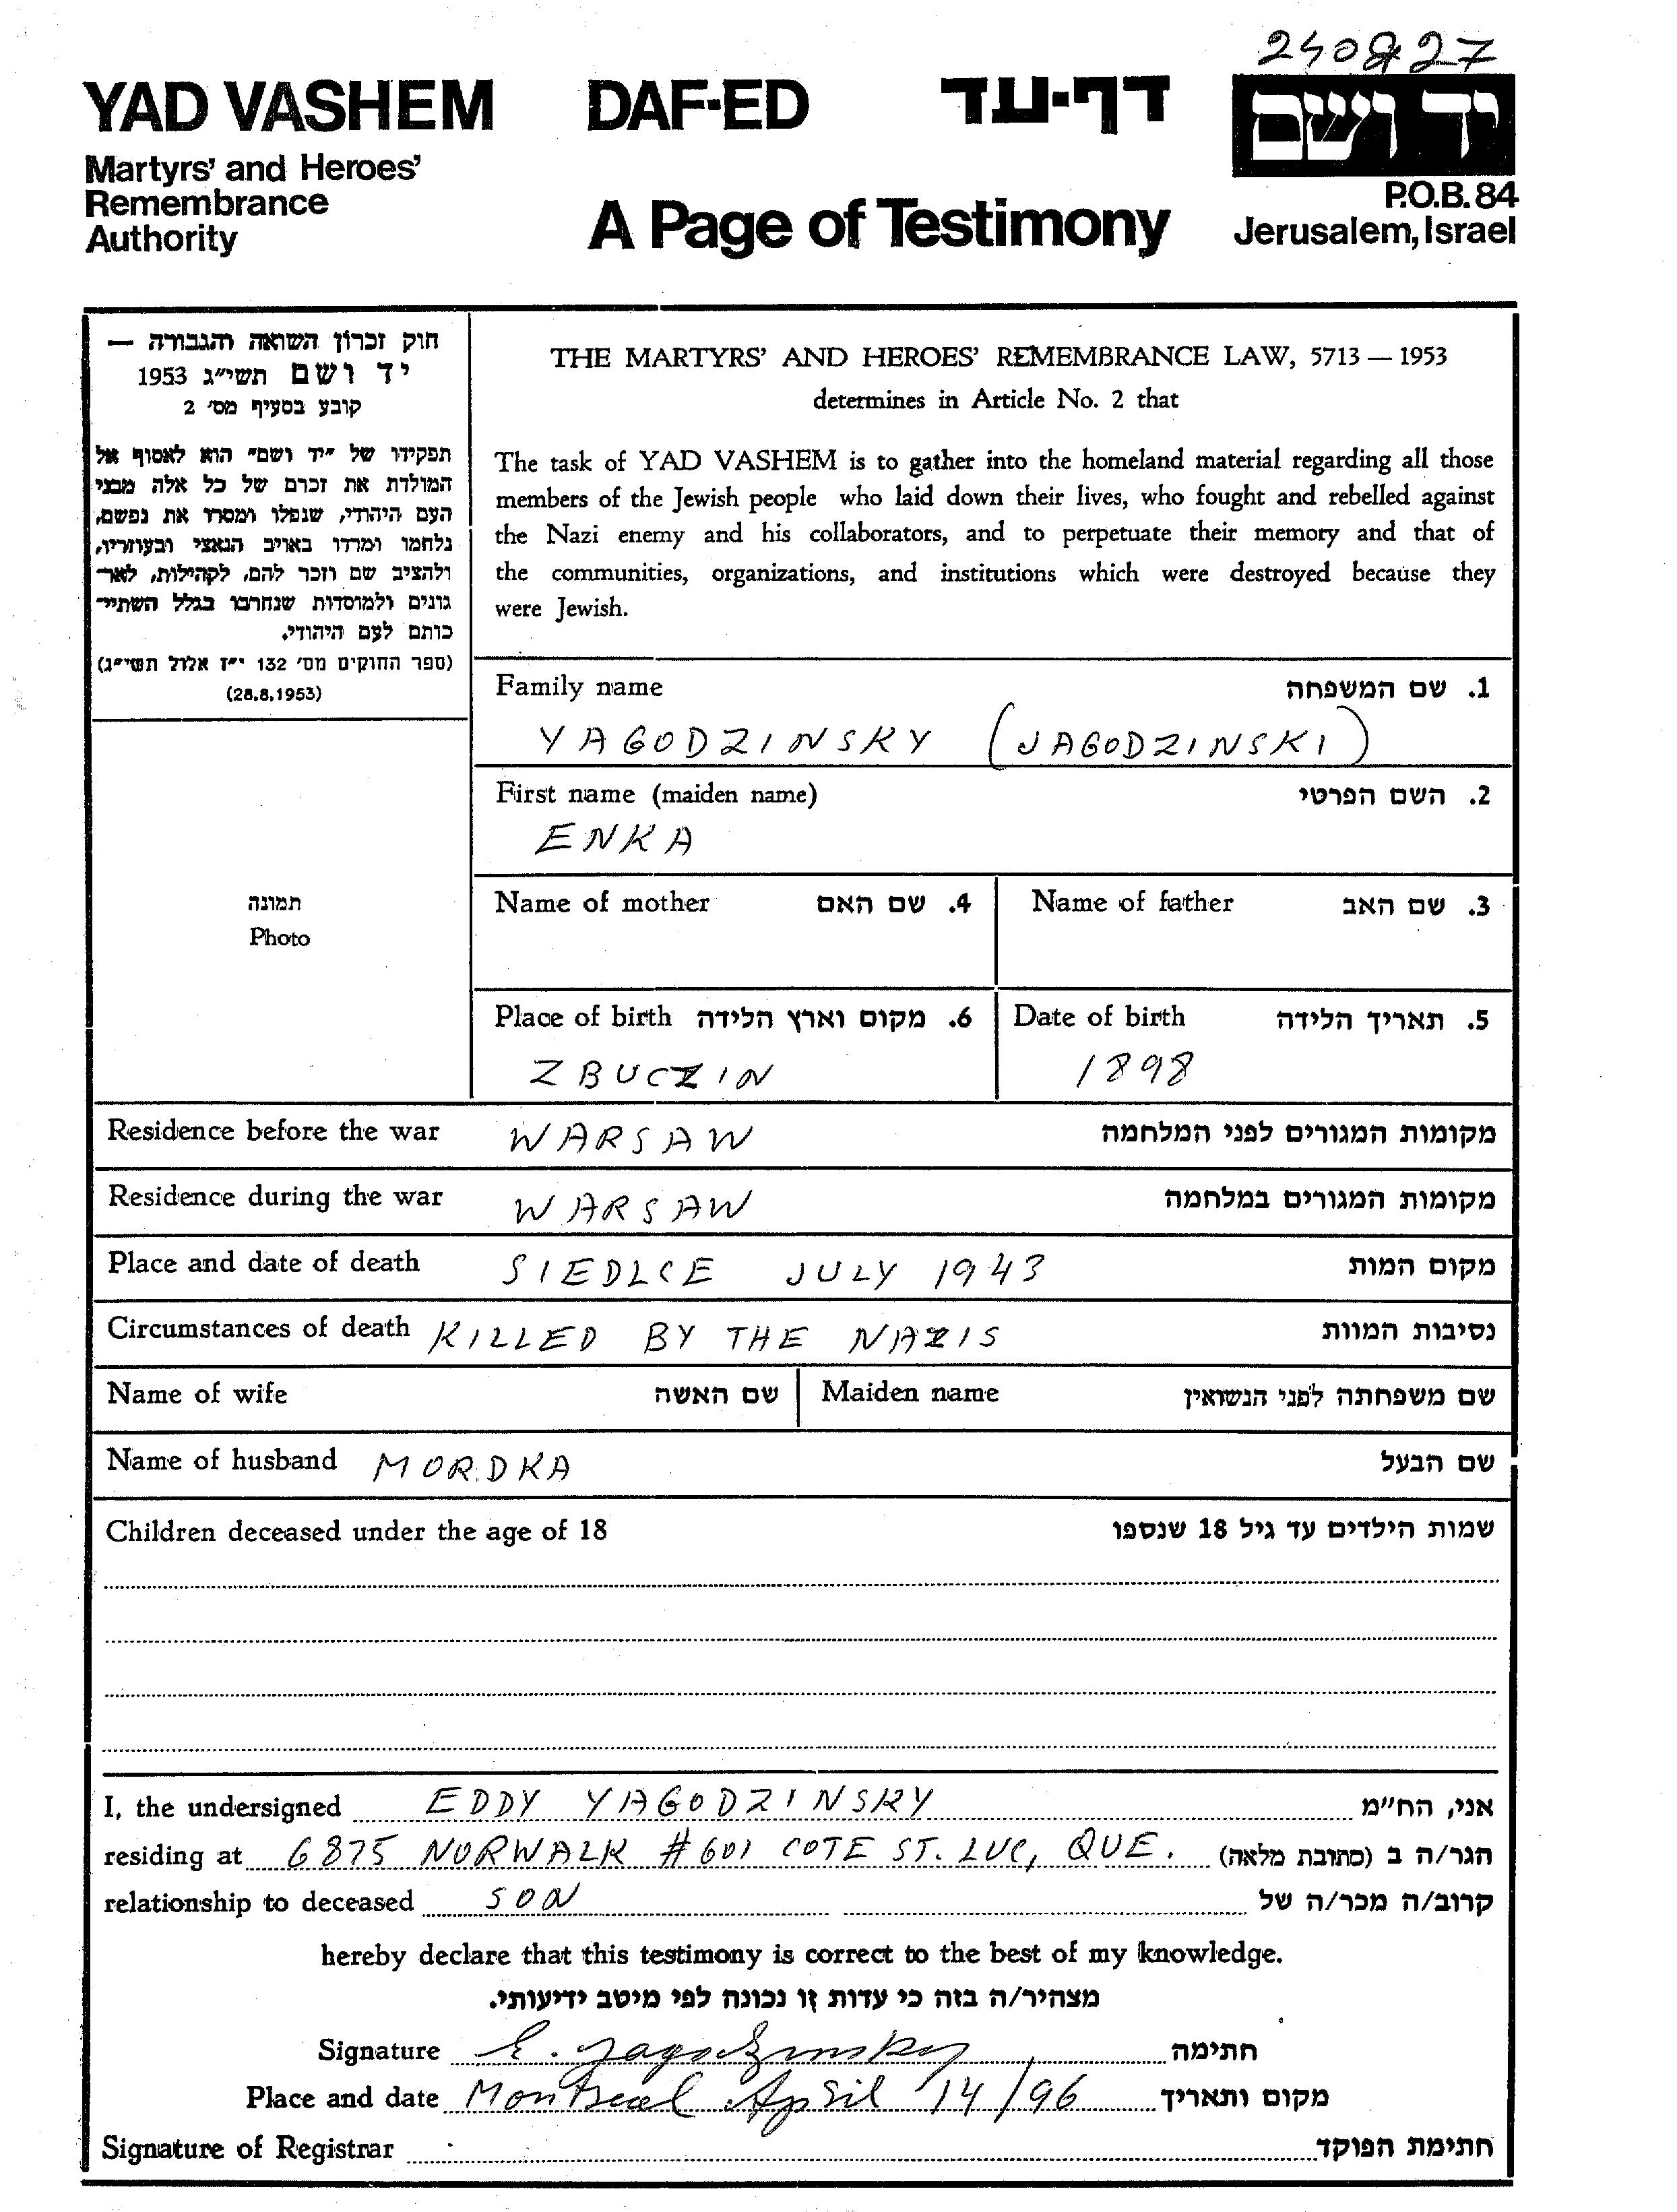 240827
YAD VASHEM DAF-ED דף-עד
יד ושם
Martyrs' and Heroes'
Remembrance
Authority
A Page of Testimony
P.O.B. 84
Jerusalem, Israel
חוק זכרון השואה והגבורה —
יד ושם תשי״ג 1953
קובע בסעיף מס׳ 2
תפקידו של ״יד ושם״ הוא לאסוף אל
המולדת את זכרם של כל אלה מבני
העם היהודי, שנפלו ומסרו את נפשם,
נלחמו ומרדו באויב הנאצי ובעוזריו,
ולהציב שם וזכר להם, לקהילות, לאר־
גונים ולמוסדות שנחרבו בגלל השתיי־
כותם לעם היהודי.
(ספר החוקים מס׳ 132 י״ז אלול תשי״ג)
(28.8.1953)
תמונה
Photo
THE MARTYRS' AND HEROES' REMEMBRANCE LAW, 5713 — 1953
determines in Article No. 2 that
The task of YAD VASHEM is to gather into the homeland material regarding all those
members of the Jewish people who laid down their lives, who fought and rebelled against
the Nazi enemy and his collaborators, and to perpetuate their memory and that of
the communities, organizations, and institutions which were destroyed because they
were Jewish.
Family name 1. שם המשפחה
YAGODZINSKY (JAGODZINSKI)
First name (maiden name) 2. השם הפרטי
ENKA
Name of mother 4. שם האם Name of father 3. שם האב
Place of birth 6. מקום וארץ הלידה Date of birth 5. תאריך הלידה
ZBUCZIN 1898
Residence before the war WARSAW מקומות המגורים לפני המלחמה
Residence during the war WARSAW מקומות המגורים במלחמה
Place and date of death SIEDLCE JULY 1943 מקום המות
Circumstances of death KILLED BY THE NAZIS נסיבות המוות
Name of wife שם האשה Maiden name שם משפחתה לפני הנשואין
Name of husband MORDKA שם הבעל
Children deceased under the age of 18 שמות הילדים עד גיל 18 שנספו
I, the undersigned EDDY YAGODZINSKY אני, הח״מ
residing at 6875 NORWALK #601 COTE ST. LUC, QUE. הגר/ה ב (כתובת מלאה)
relationship to deceased SON קרוב/ה מכר/ה של
hereby declare that this testimony is correct to the best of my knowledge.
מצהיר/ה בזה כי עדות זו נכונה לפי מיטב ידיעותי.
Signature E. Yagodzinsky חתימה
Place and date Montreal April 14/96 מקום ותאריך
Signature of Registrar חתימת הפוקד